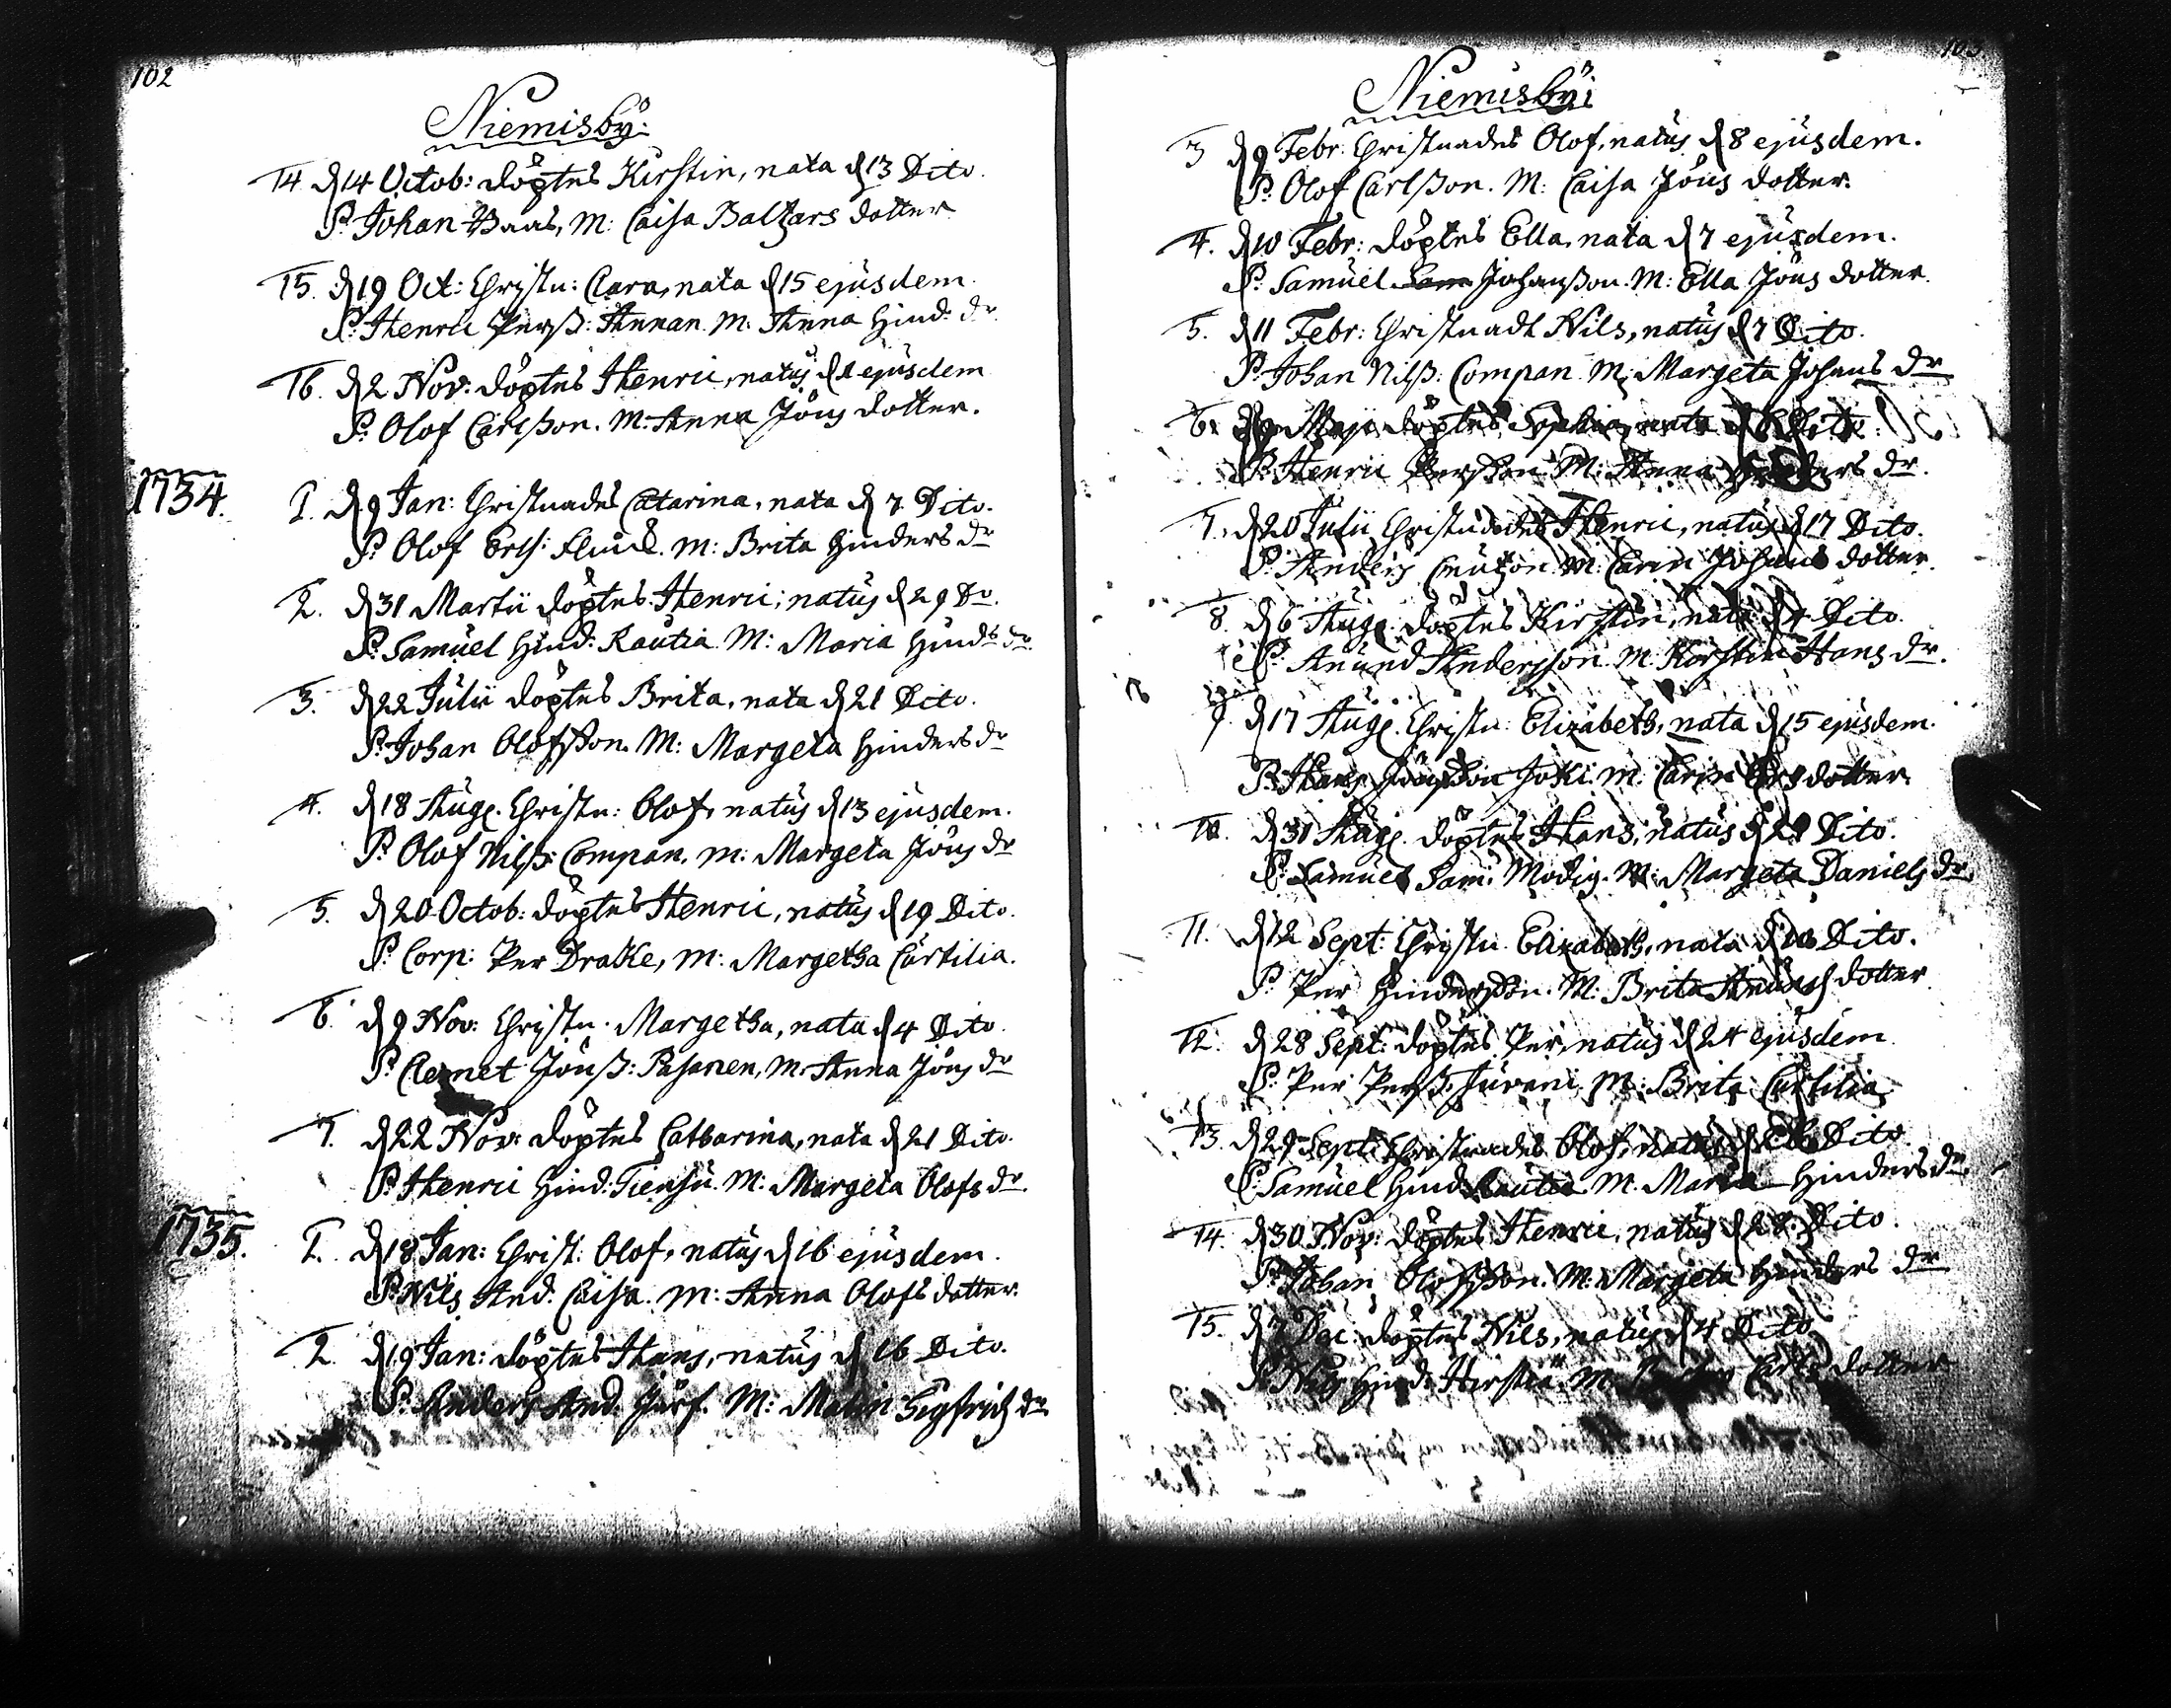 102
Niemisby:
14. d 14 Octob: döptes Kirstin, nata d 13 Dito.
P: Johan Baas, M: Caisa Baltzars dotter
15. d 19 Oct: Christn: Clara, nata d 15 ejusdem.
P: Henric Perß: Annan. M: Anna Hind: dr
16. d 2 Nov: döptes Henric, natus d 1 ejusdem
P: Olof Carlßon. M: Anna Jöns dotter.
1734.
1. d 9 Jan: Christnades Catarina, nata d 7 Dito.
P: Olof Erls: M: Brita Hinders dr
2. d 31 Martii döptes Henric, natus d 29 Do.
P: Samuel Hind: Rautia M: Maria Hinds dr
3. d 22 Julii döptes Brita, nata d 21 Dito.
P: Johan Olofsson. M: Margeta Hinders dr
4. d 18 Aug. Christn: Olof, natus d 13 ejusdem.
P: Olof Nilß: Compan, M: Margeta Jöns dr
5. d 20 Octob: döptes Henric, natus d 19 Dito.
P: Corp: Per Drake, M: Margetha Curtilia.
6. d 9 Nov: Christn. Margetha, nata d 4 Dito.
P: Clemet Jönß: Pasanen, M: Anna Jöns dr
7. d 22 Nov: döptes Catharina, nata d 21 Dito.
P: Henric Hind: Tiensu. M: Margeta Olofs dr
1735.
1. d 18 Jan: Christ: Olof, natus d 16 ejusdem.
P: Nils And: Caisa. M: Anna Olofs dotter.
2. d 19 Jan: döptes Hans, natus d 16 Dito.
P: Anders And. Järf. M: Malin Sigfrids dr
103
Niemisby:
3 d 9 Febr: Christnades Olof, natus d 8 ejusdem.
P: Olof Carlßon. M: Caisa Jöns dotter.
4. d 10 Febr: döptes Ella, nata d 7 ejusdem.
P: Samuel Johanßon. M: Ella Jöns dotter.
5. d 11 Febr: Christnadt Nils, natus d 7 Dito.
P: Johan Nilß: Compan. M: Margeta Johans dr
6. Maji döptes Sophia, nata d 8 Dito.
P: Henric Perßon M: Anna Hinders dr.
7. d 20 Julii Christnades Henric, natus d 17 Dito.
P: Anders M: Carin Johans dotter.
8. d 6 Aug. döptes Kirstin, nata d 4 Dito.
P: Anund Andersson. M: Kirstin Hans dr.
9. d 17 Aug. Christn: Elizabeth, nata d 15 ejusdem.
P: Hans Jönßon Joki. M: Carin Ers dotter.
10. d 31 Aug. döptes Hans, natus d 29 Dito.
P: Samuel Sam: Modig. M: Margeta Daniels dr
11. d 12 Sept: Christn: Elizabeth, nata d 10 Dito.
P: Per Hinderßon. M: Brita Anunds dotter
12. d 28 Sept: döptes Per, natus d 24 ejusdem
P: Per Perß: Juvani. M: Brita Curtilia.
13. d 29 Sept: Christnades Olof, natus d Dito.
P: Samuel Hind: Rautia. M. Maria Hinders dr.
14. d 30 Nov: döptes Henric, natus d 28 Dito.
P: Johan Olofsson. M: Margeta Hinders dr.
15. d 7 Dec: döptes Nils, natus d 4 Dito.
P: Nils Hind: M: dotter